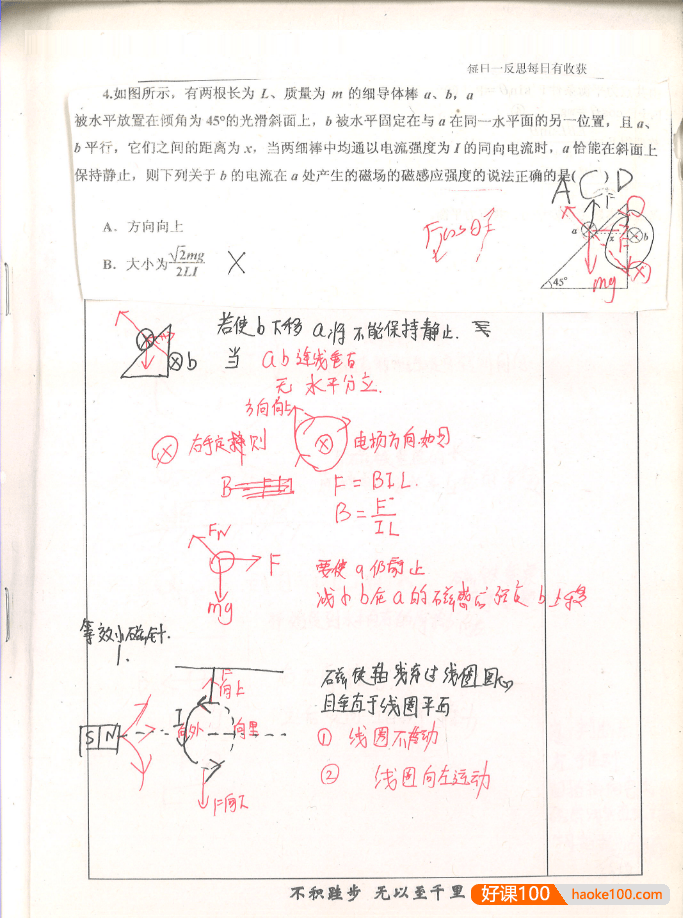 每日一反思每日有收获
4.如图所示，有两根长为 L、质量为 m 的细导体棒 a、b，a
被水平放置在倾角为 45°的光滑斜面上，b 被水平固定在与 a 在同一水平面的另一位置，且 a、
b 平行，它们之间的距离为 x，当两细棒中均通以电流强度为 I 的同向电流时，a 恰能在斜面上
保持静止，则下列关于 b 的电流在 a 处产生的磁场的磁感应强度的说法正确的是(
A C) D
F
a x b
45° mg
A. 方向向上
Fcosθ
B. 大小为√2mg/2LI ×
若使b下移 a将不能保持静止.
b 当 ab连线垂直
无 水平分立.
方向向上
右手定则
B=
F = BIL.
B = F/IL
FN
F
mg
要使a仍静止
减小b在a的磁感应强度 b上移
等效小磁针.
1.
F向上
S N
I
向外 向里
F向下
且垂直于线圈平面
① 线圈不动
② 线圈向左运动
不积跬步 无以至千里
好课100 haoke100.com